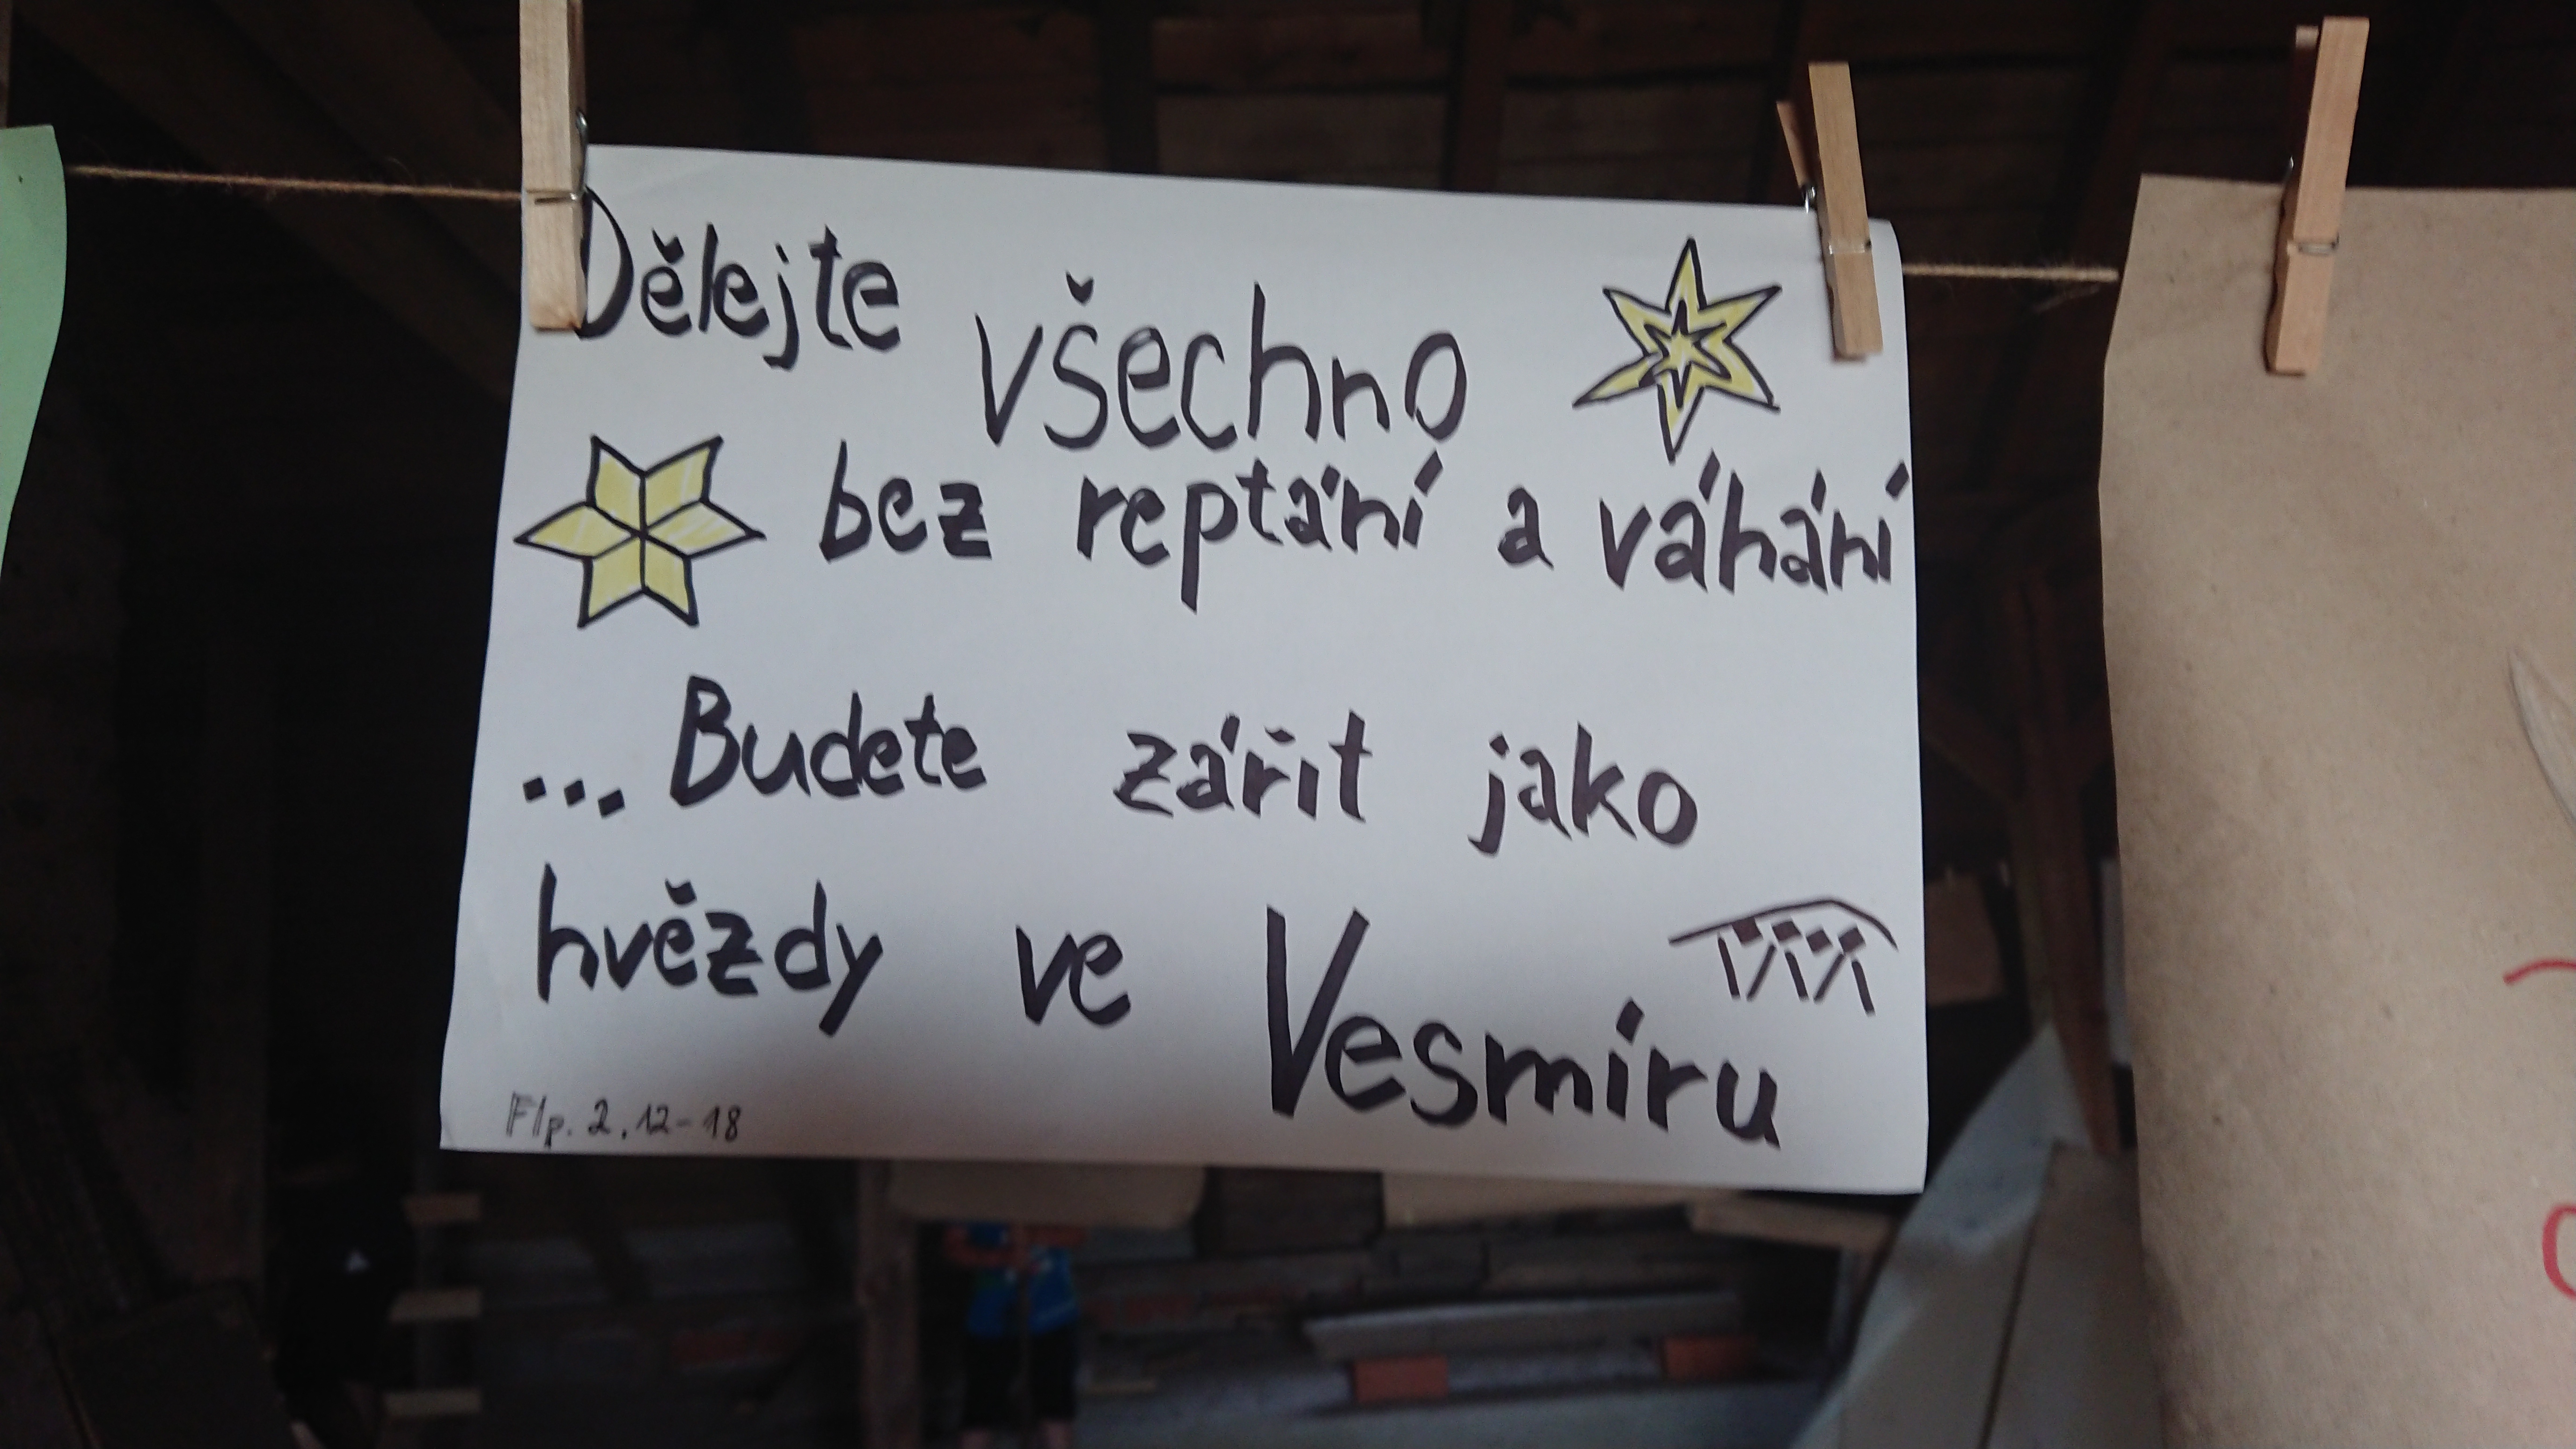 Dělejte všechno
bez reptání a váhání
... Budete zářit jako
hvězdy ve Vesmíru
Flp. 2, 12-18